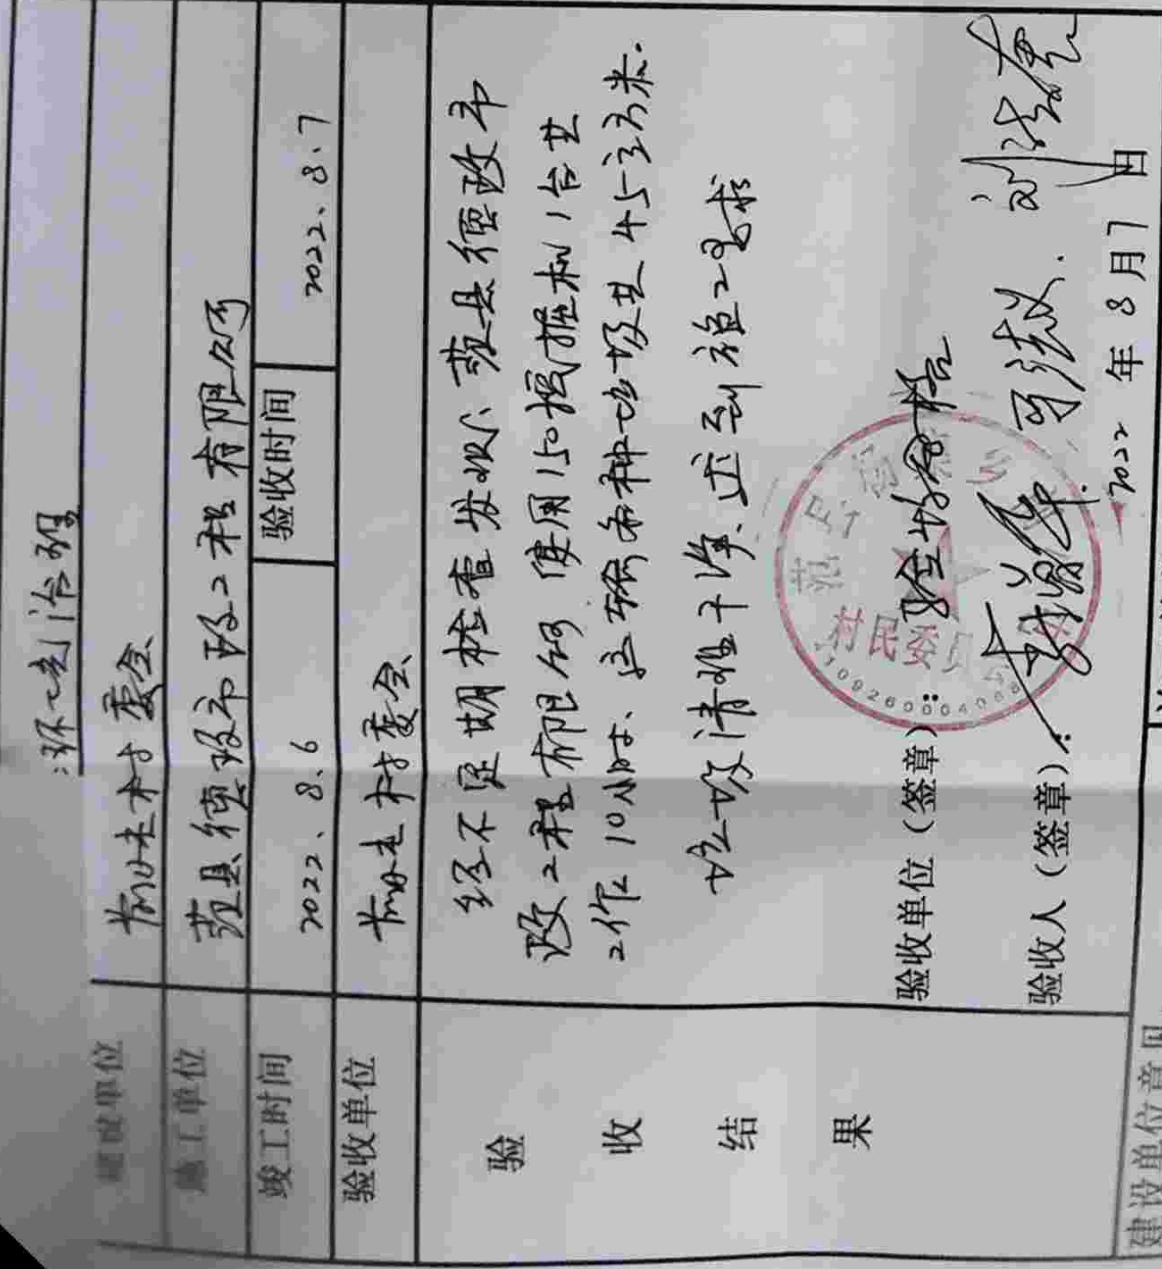 环境治理
建设单位 村委会
施工单位 范县德政市政工程有限公司
竣工时间 2022.8.6 验收时间 2022.8.7
验收单位 村委会
验收结果
经不定期检查发现、范县德政市
政工程有限公司使用150挖掘机1台共
工作10小时、运输各种垃圾共45立方米.
垃圾清理干净.达到施工要求
验收单位（签章）：验收合格
村民委员会
验收人（签章）：
2022 年 8 月 7 日
建设单位意见